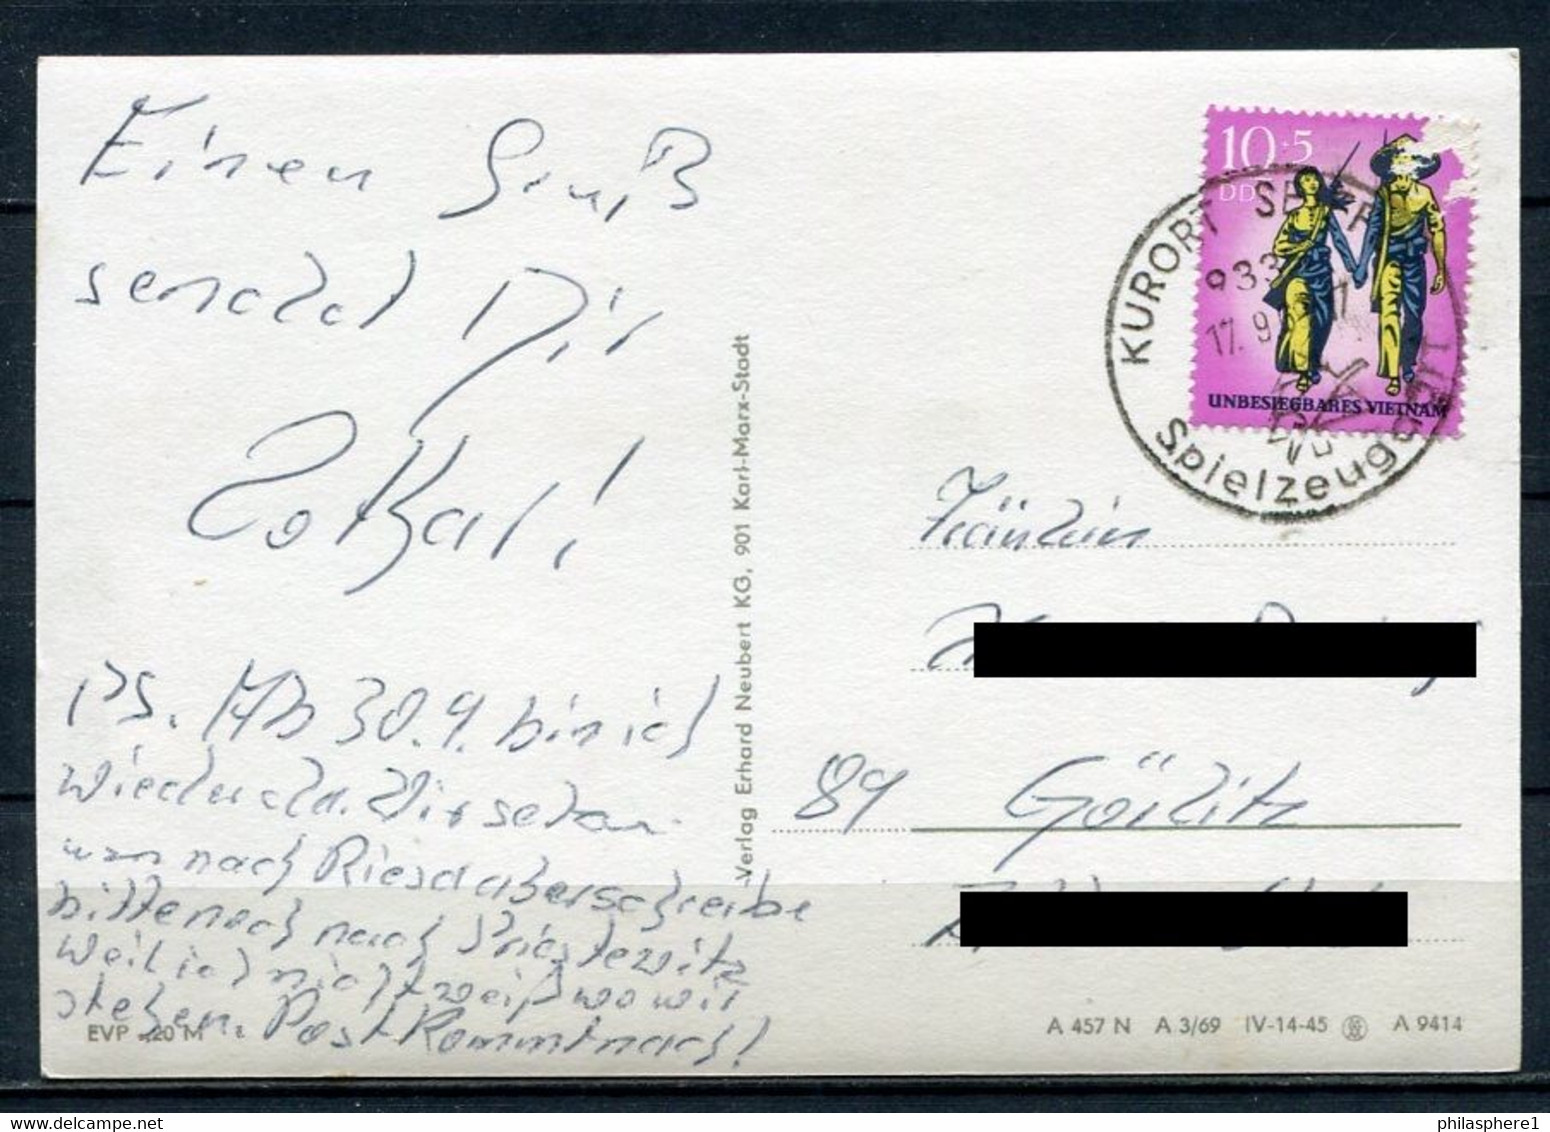 Einen Gruß
sendet Dir
Lothar!
PS. Ab 30.9. bin ich
wieder da. Wir setzen
nach Riesa aber schreibe
bitte noch nach Priestewitz
weil ich nicht weiß wo wir
stehen. Post kommt nach!
EVP -20 M
Verlag Erhard Neubert KG, 901 Karl-Marx-Stadt
10+5
DDR
UNBESIEGBARES VIETNAM
KURORT SEIFFEN
933
17.9
Spielzeug
Fräulein
89 Görlitz
A 457 N A 3/69 IV-14-45 A 9414
philasphere1